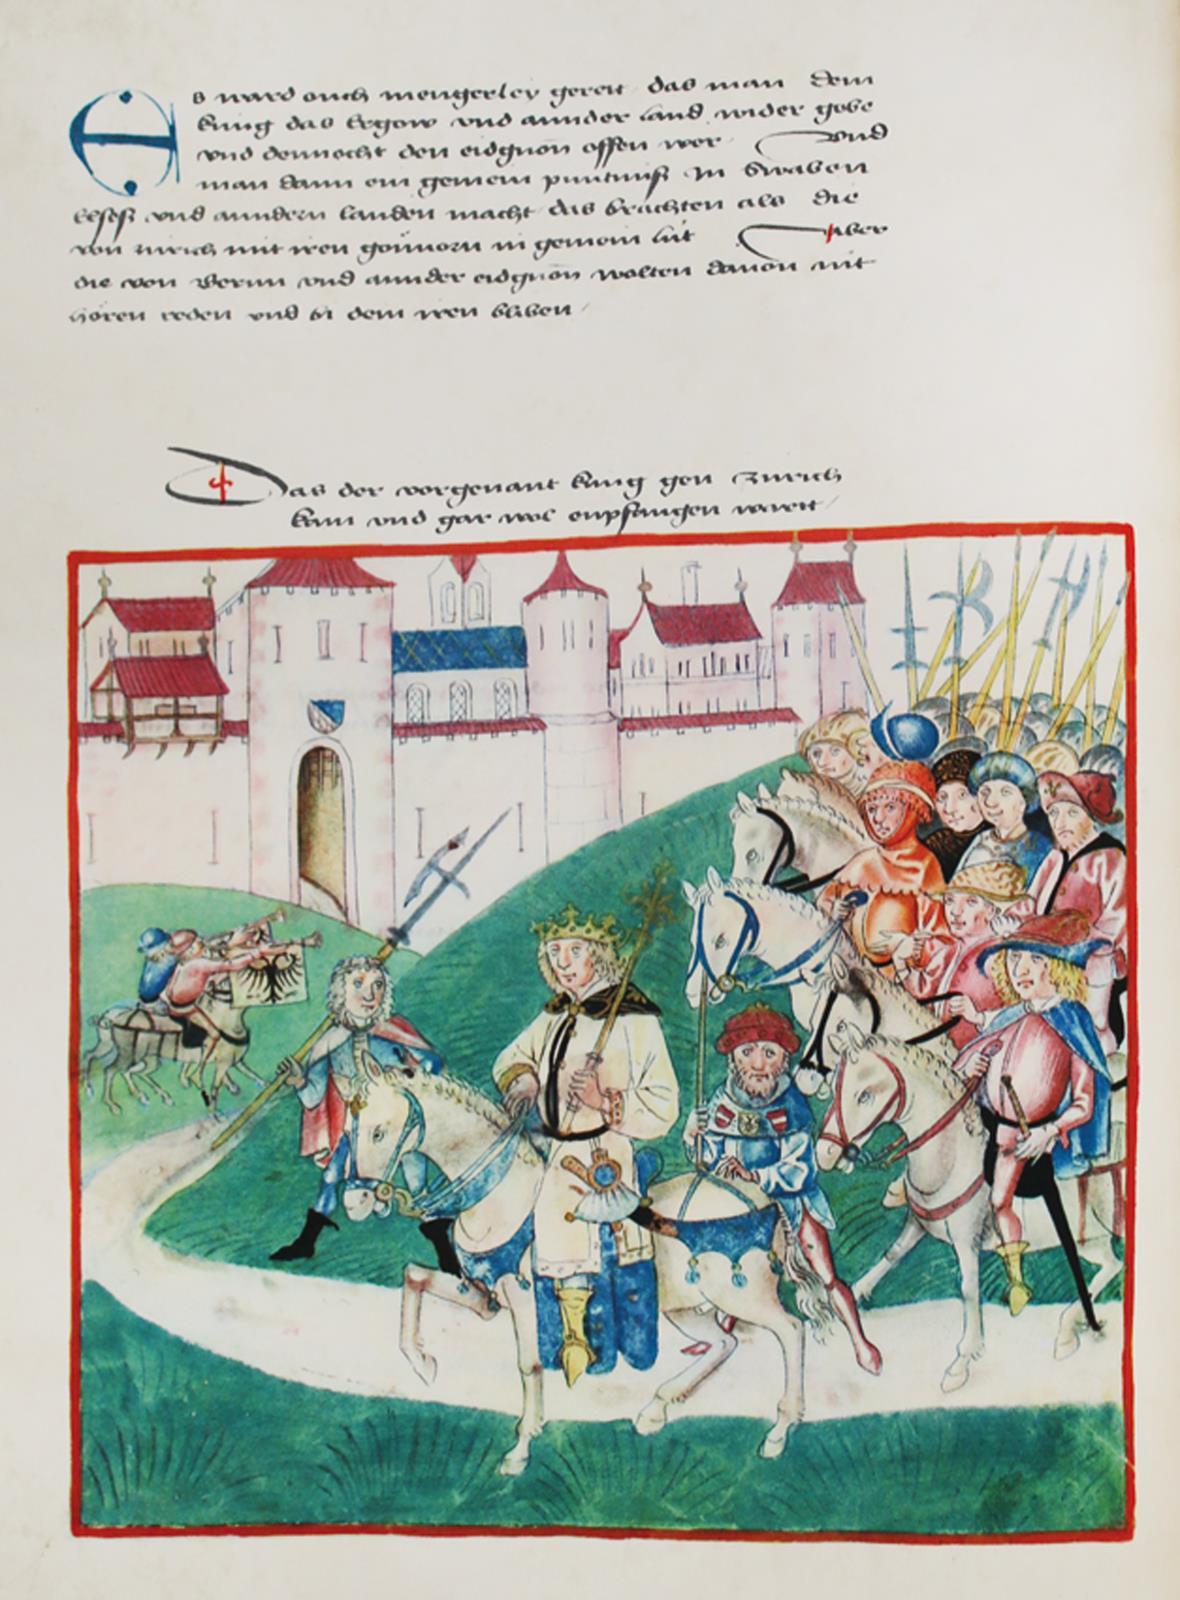 Es ward ouch mengerley gerett das man dem
kung das Ergow vnd annder land wider gebe
vnd dennocht den eidgnon offen wer Vnd
man dann ein gemein puntnuß In Swaben
Elseß vnd anndern landen macht das brachten als die
von zurich mit iren gönnorn in gemein lüt Aber
die von Bernn vnd annder eidgnon wolten dauon nit
hören reden vnd bi dem iren bliben
Das der vorgenant kung gen Zurich
kam vnd gar wol enpfangen wartt